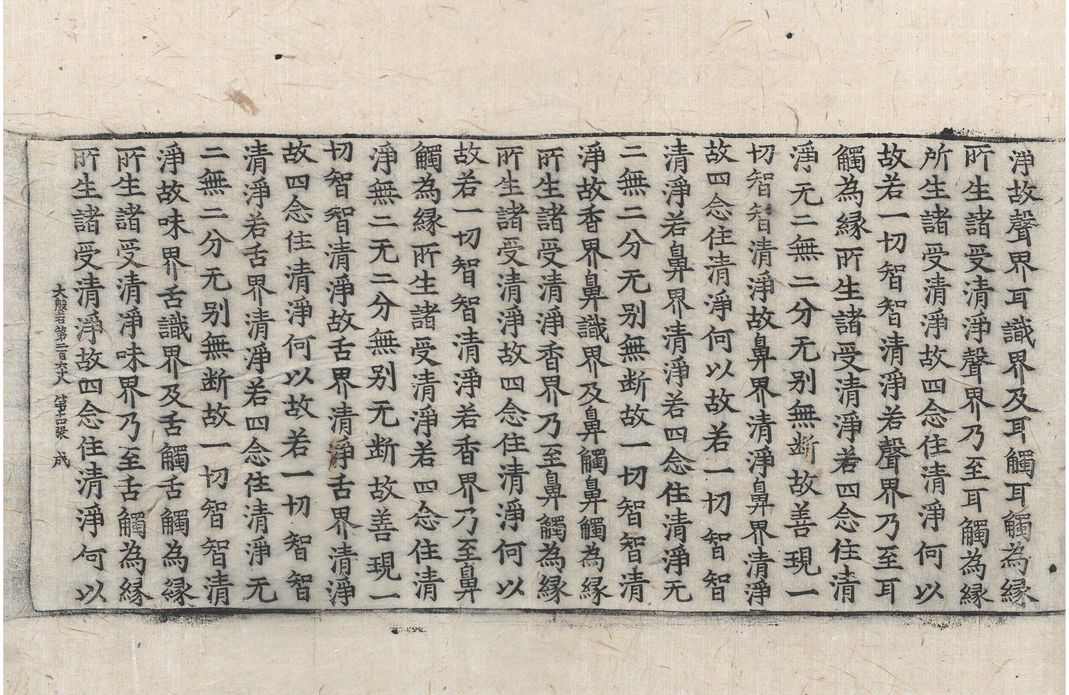 淨故聲界耳識界及耳觸耳觸為縁
所生諸受清淨聲界乃至耳觸為縁
所生諸受清淨故四念住清淨何以
故若一切智智清淨若聲界乃至耳
觸為縁所生諸受清淨若四念住清
淨无二無二分无别無断故善現一
切智智清淨故鼻界清淨鼻界清淨
故四念住清淨何以故若一切智智
清淨若鼻界清淨若四念住清淨无
二無二分无别無断故一切智智清
淨故香界鼻識界及鼻觸鼻觸為縁
所生諸受清淨香界乃至鼻觸為縁
所生諸受清淨故四念住清淨何以
故若一切智智清淨若香界乃至鼻
觸為縁所生諸受清淨若四念住清
淨無二无二分無别无断故善現一
切智智清淨故舌界清淨舌界清淨
故四念住清淨何以故若一切智智
清淨若舌界清淨若四念住清淨无
二無二分无别無断故一切智智清
淨故味界舌識界及舌觸舌觸為縁
所生諸受清淨味界乃至舌觸為縁
所生諸受清淨故四念住清淨何以
大般若第二百 張 成